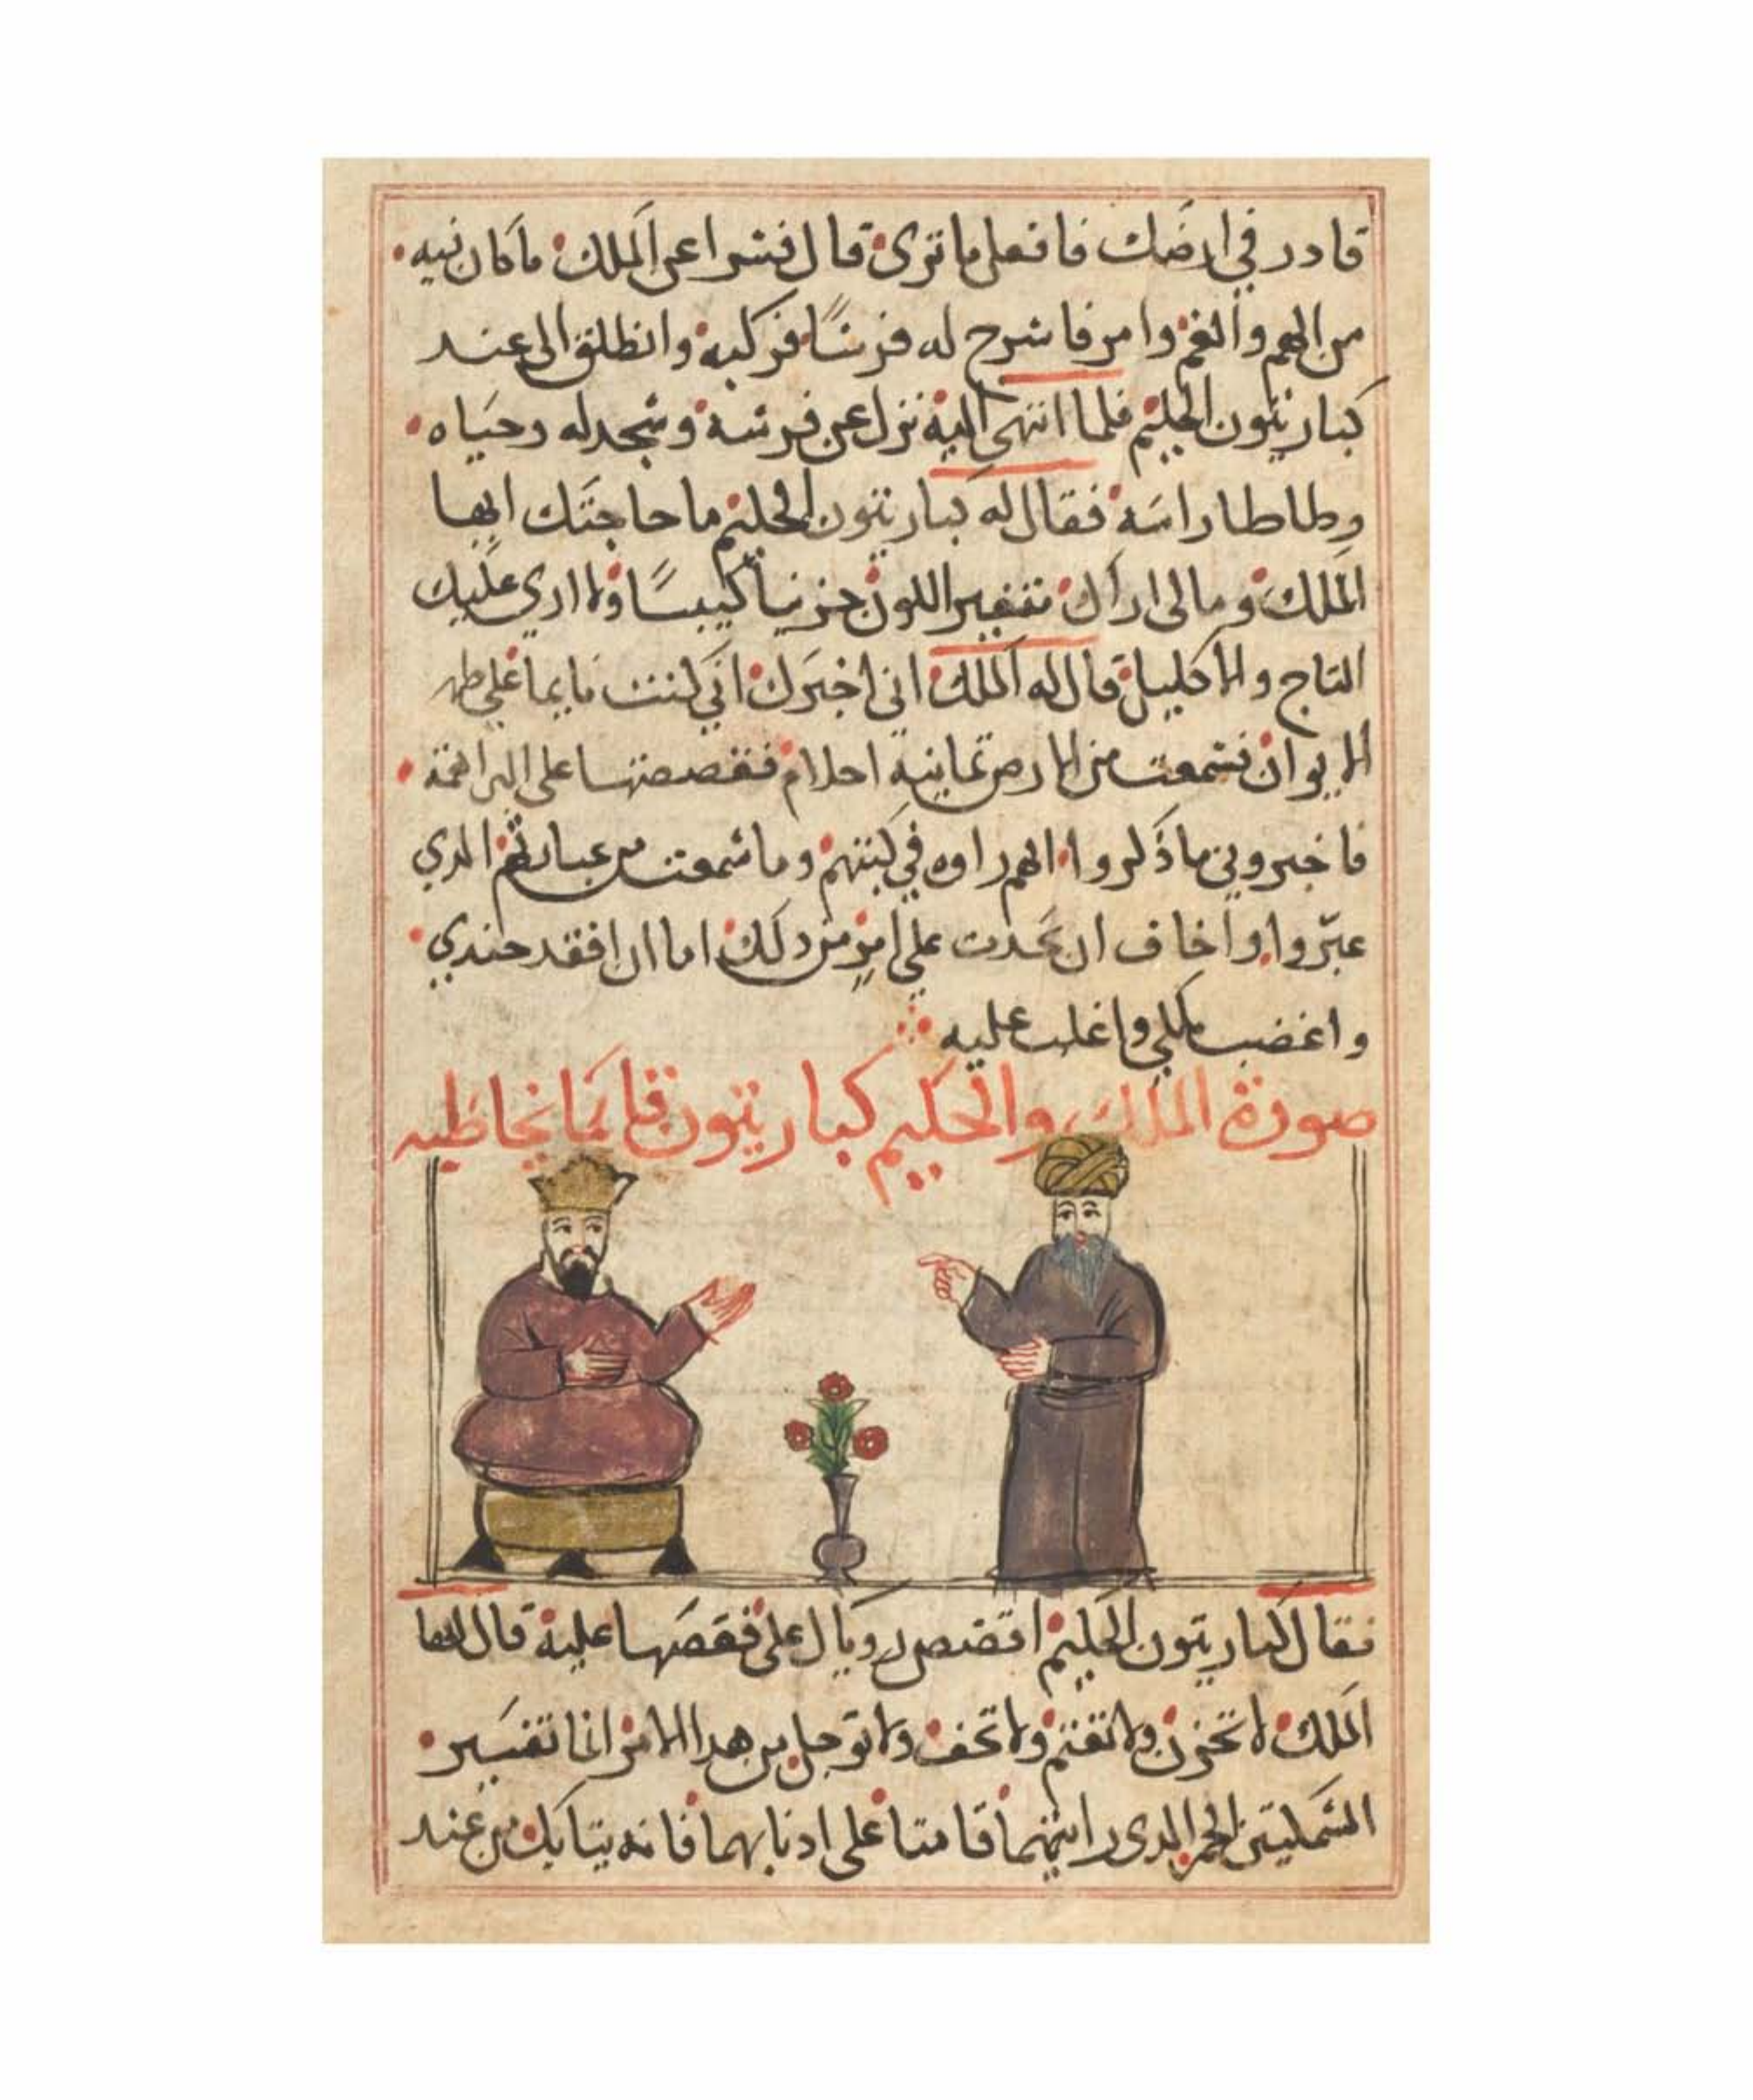 قادر في ارضك فافعل ما ترى قال فسرا عن الملك ما كان فيه
من الهم والغم وامر فاسرج له فرسًا فركبه وانطلق الى عند
كباريتون الحكيم فلما انتهى اليه نزل عن فرسه وسجد له وحياه
وطاطا راسه فقال له كباريتون الحكيم ما حاجتك ايها
الملك ومالي اراك متغير اللون حزينا كييبًا ولا اري عليك
التاج والاكليل قال له الملك اني اخبرك اني كنت نايما على ظهر
الايوان فسمعت من الارض ثمانيه احلام فقصصتها على البراهمة
فاخبروني ما ذكروا انهم راوه في كتبهم وما سمعت من عبارتهم الدي
عبّروا واخاف ان يحدت علي امر من دلك اما ان افقد جندي
واغضب ملكي واغلب عليه
صورة الملك والحكيم كباريتون قايما يخاطبه
فقال كباريتون الحكيم اقصص روياك على فقصها عليه قال ايها
الملك لا تحزن ولا تغتم ولا تخف ولا توجل من هدا الامر اما تفسير
السمكتين الحمر الدى رايتهما قامتا على ادنابهما فانه يتايك من عند